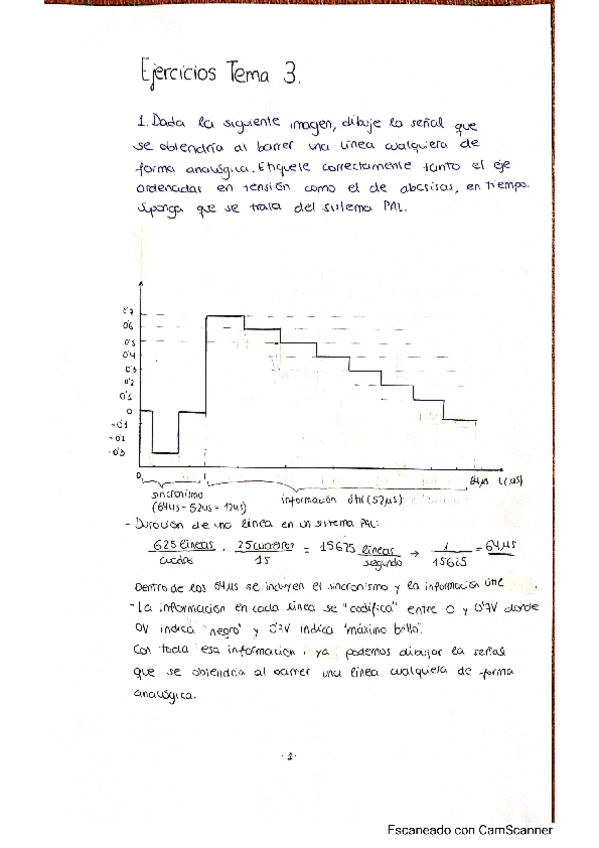 Ejercicios Tema 3.
1. Dada la siguiente imagen, dibuje la señal que
se obtendría al barrer una línea cualquiera de
forma analógica. Etiquete correctamente tanto el eje
ordenadas en tensión como el de abscisas, en tiempo.
Suponga que se trata del sistema PAL.
0'7
0'6
0'5
0'4
0'3
0'2
0'1
0
-0'1
-0'2
-0'3
0 64μs t(μs)
sincronismo
(64μs - 52μs = 12μs)
información útil (52μs)
- Duración de una línea en un sistema PAL:
625 líneas / cuadro · 25 cuadros / 1s = 15625 líneas / segundo → 1 / 15625 = 64μs
Dentro de los 64μs se incluyen el sincronismo y la información útil.
- La información en cada línea se "codifica" entre 0 y 0'7V donde
0V indica "negro" y 0'7V indica "máximo brillo".
Con toda esa información, ya podemos dibujar la señal
que se obtendría al barrer una línea cualquiera de forma
analógica.
· 1 ·
Escaneado con CamScanner